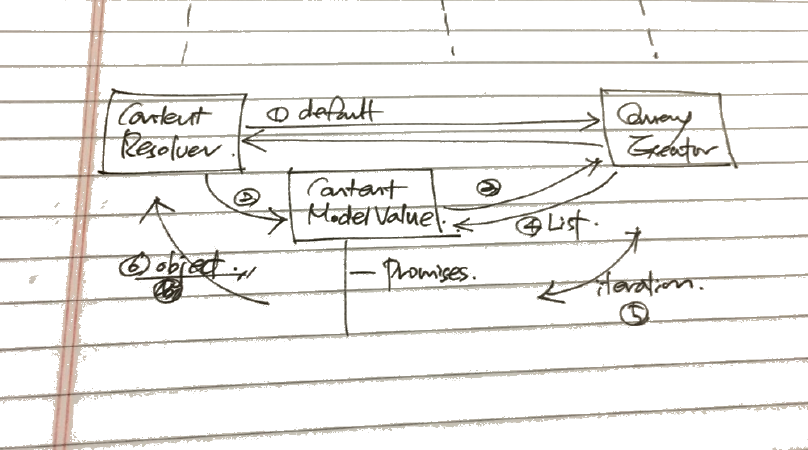 Content
Resolver.
① default
Query
Executor
②
Content
ModelValue.
③
④ List.
⑥ object.
— Promises.
iteration.
⑤